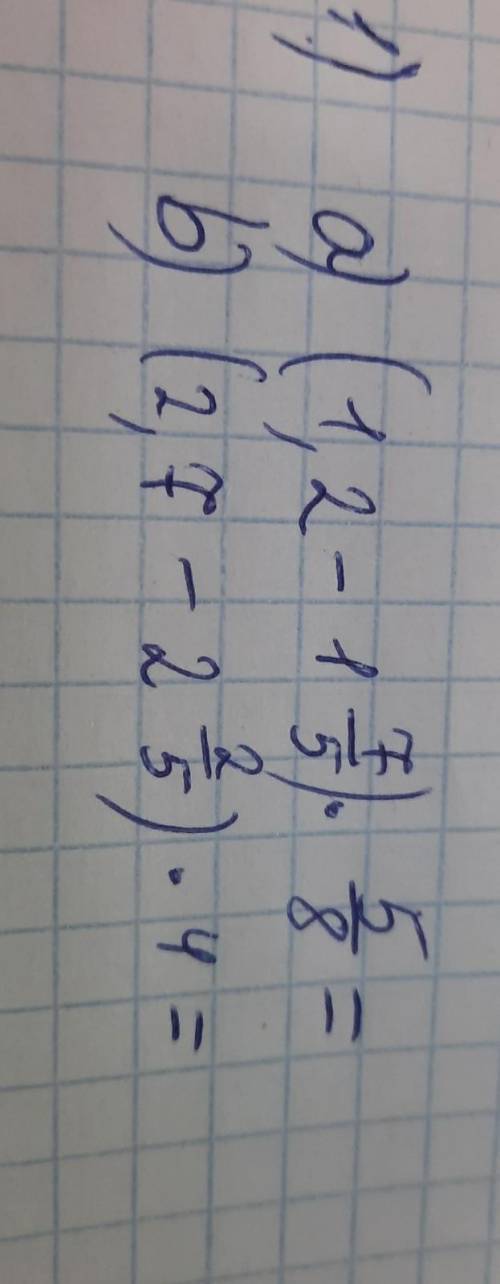 1)
a) (1,2 - 1 7/5) · 5/8 =
b) (2,7 - 2 2/5) · 4 =